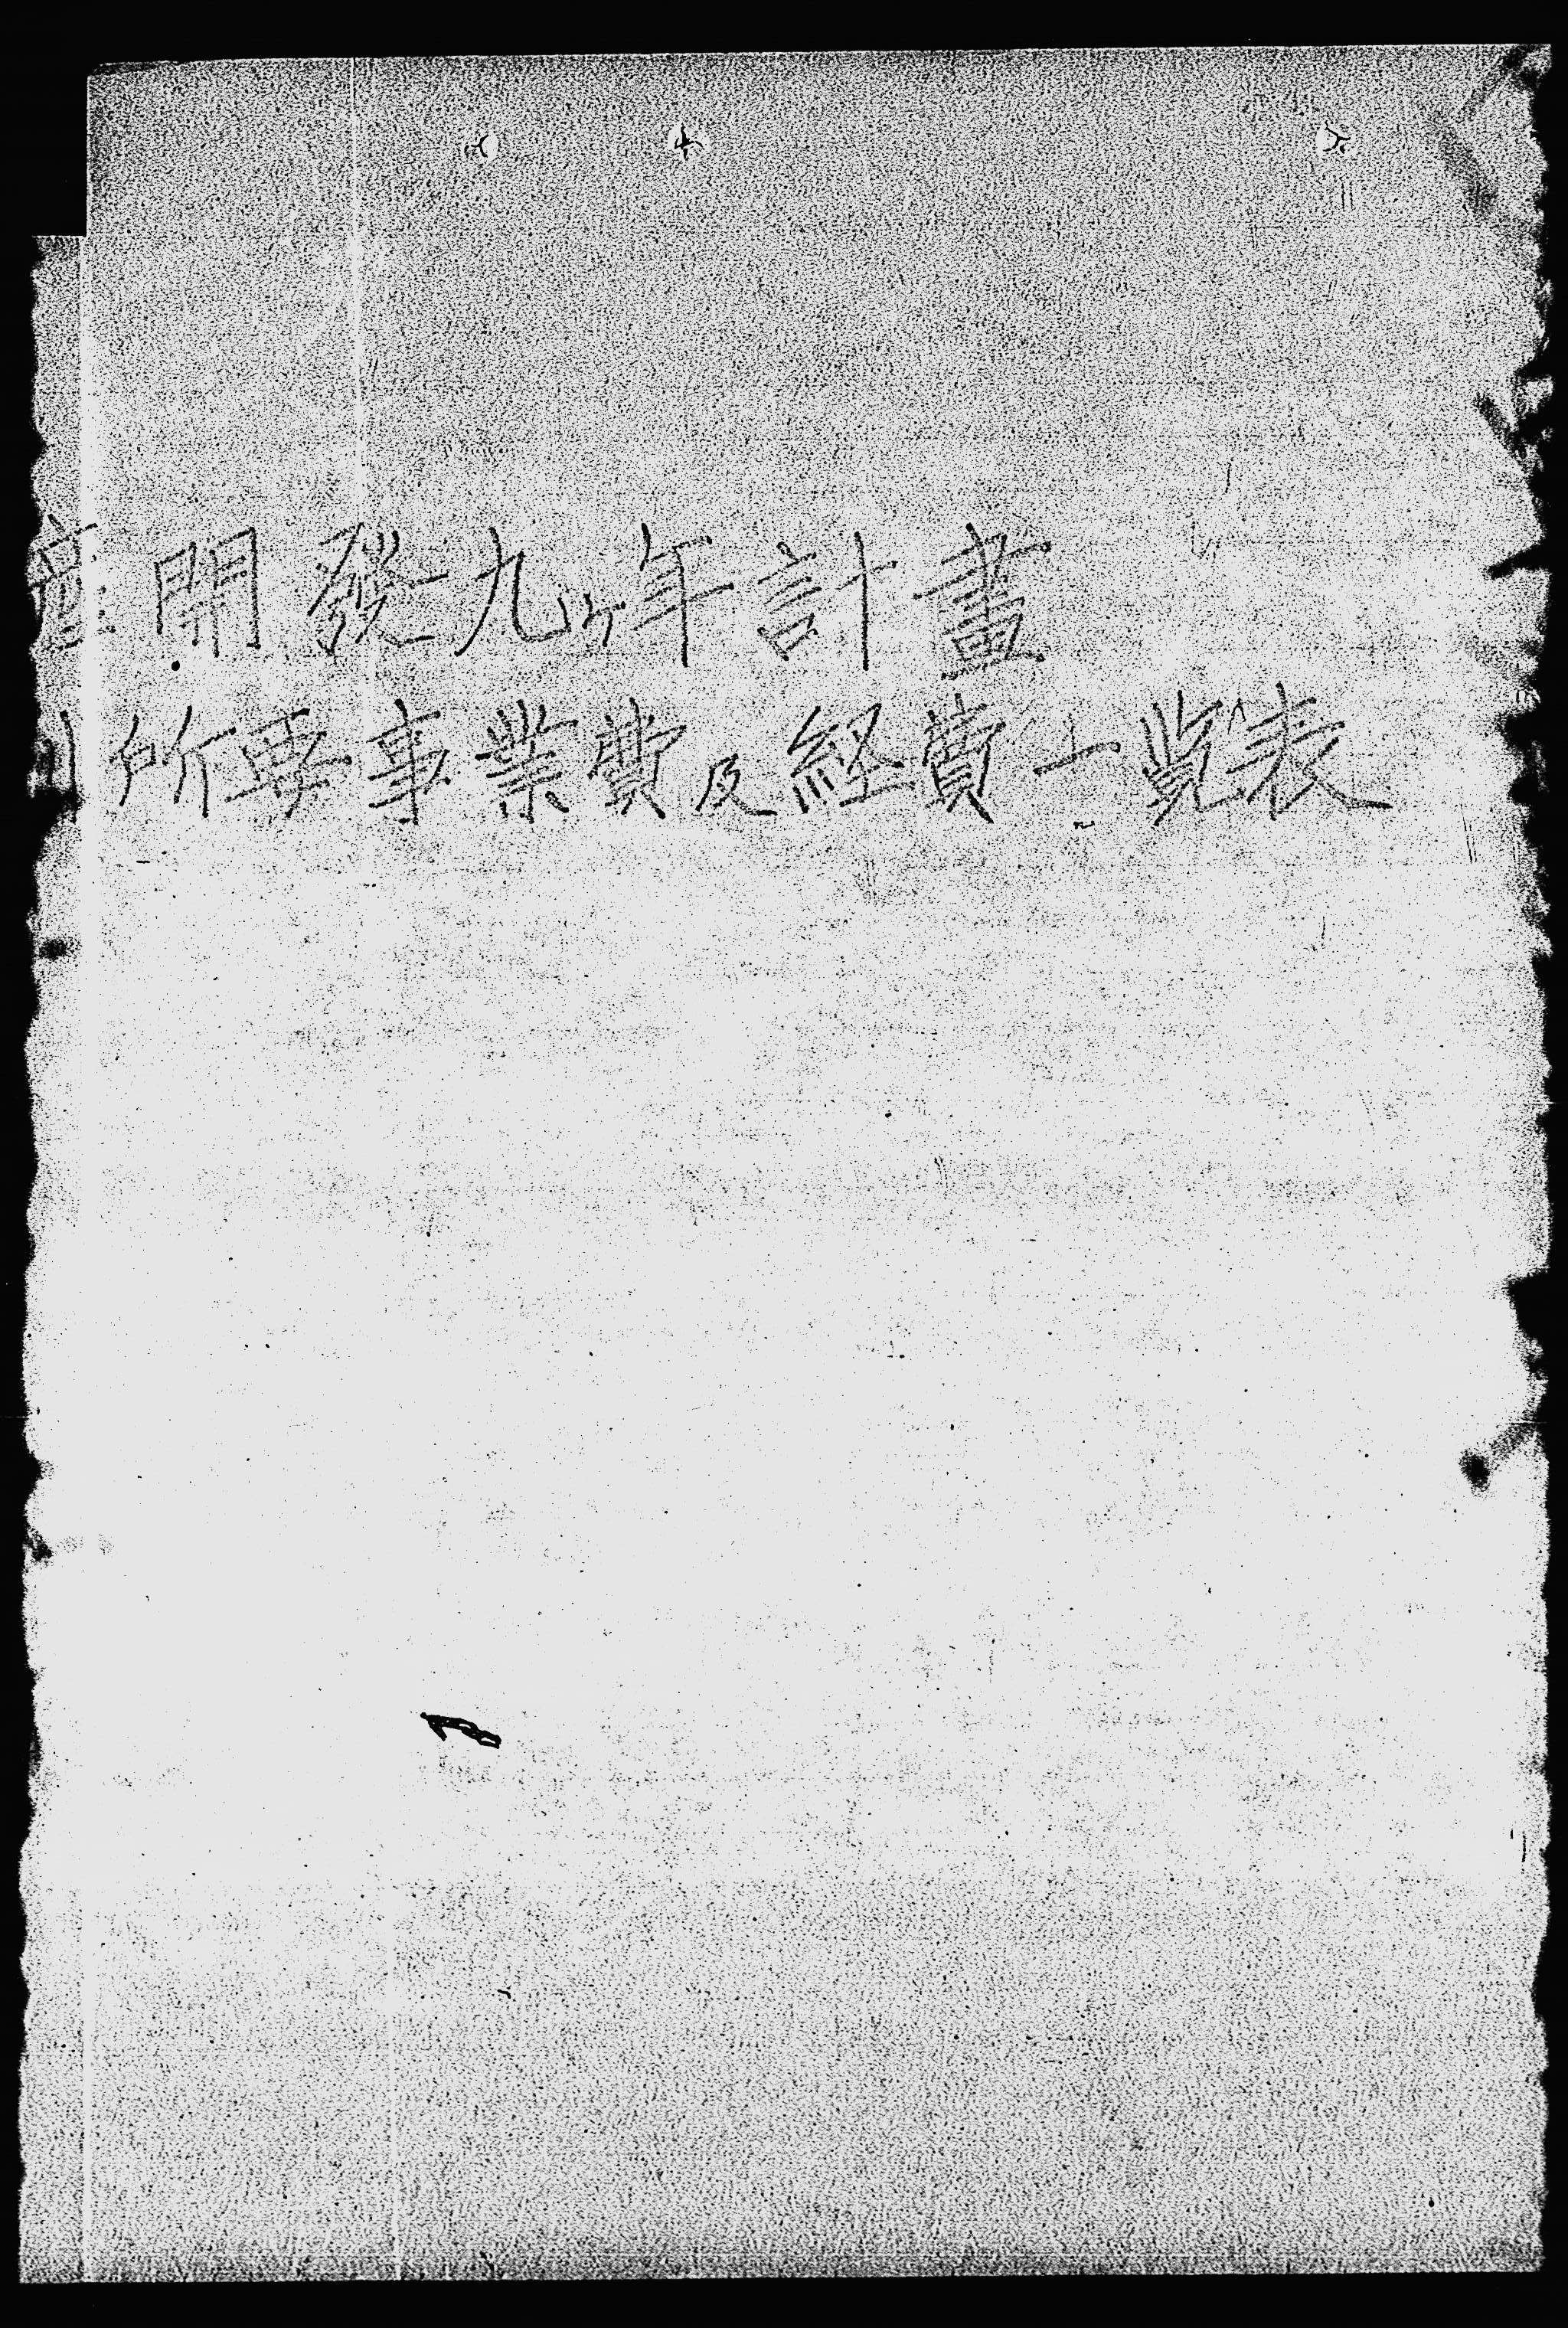 産開發九ヶ年計畫
所要事業費及経費一覧表